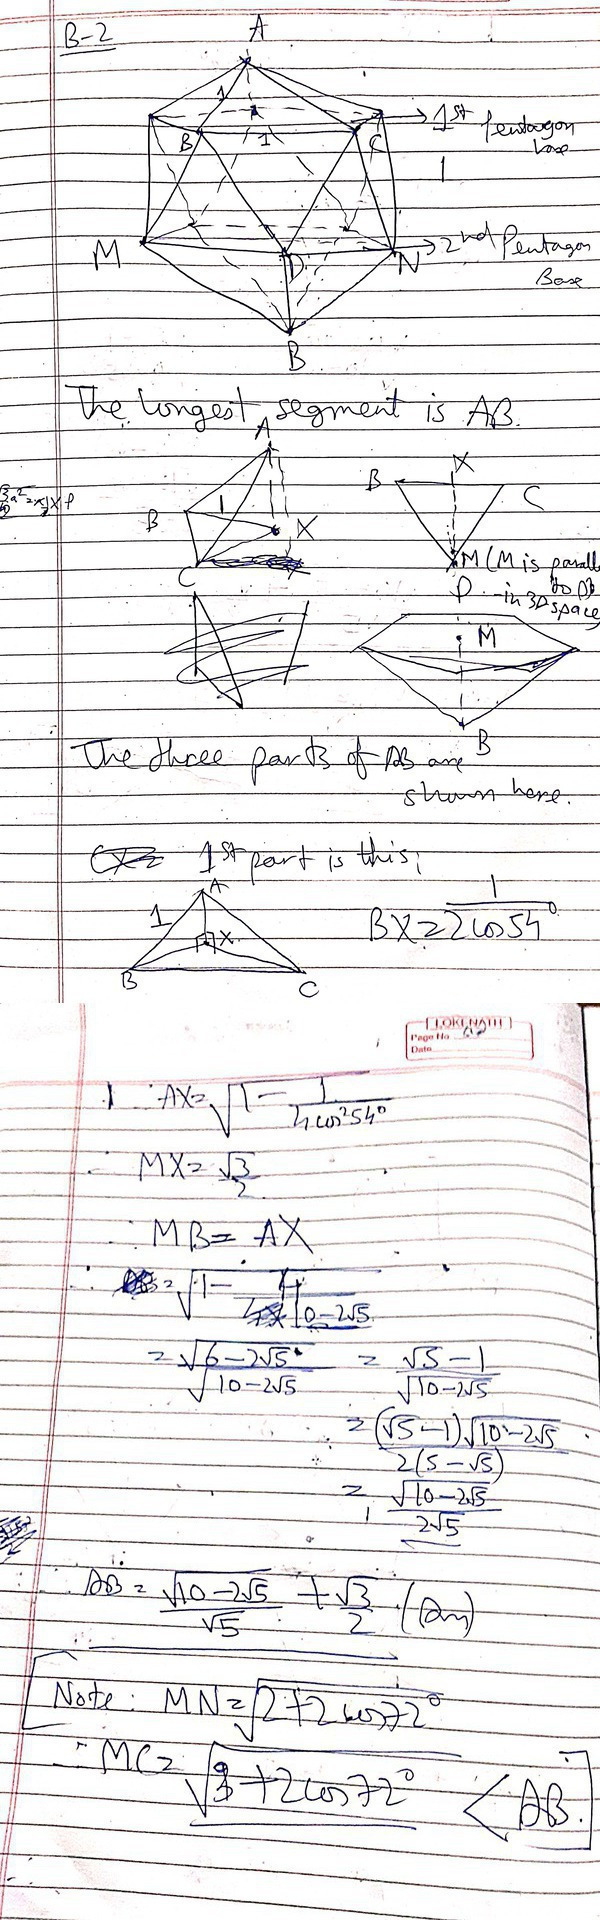 B-2
A
1
1st Pentagon base
B
1
C
1
M
D
N
2nd Pentagon Base
B
The longest segment is AB.
A
B
1
X
C
B
X
C
M (M is parall
to
P
in 3D space
M
B
The three parts of AB are
shown here.
1st part is this;
A
1
X
B
C
BX = 1/(2cos54°)
LOKENATH
Page No
Date
AX = √(1 - 1/(4cos²54°))
∴ MX = √3/2
∴ MB = AX
∴ = √(1 - 4/(10-2√5))
= √(6-2√5)/√(10-2√5) = (√5-1)/√(10-2√5)
= (√5-1)√(10-2√5)/(2(5-√5))
= √(10-2√5)/(2√5)
∴ AB = √(10-2√5)/√5 + √3/2 (Ans)
Note: MN = √(2+2cos72°)
∴ MC = √(3+2cos72°) < AB.